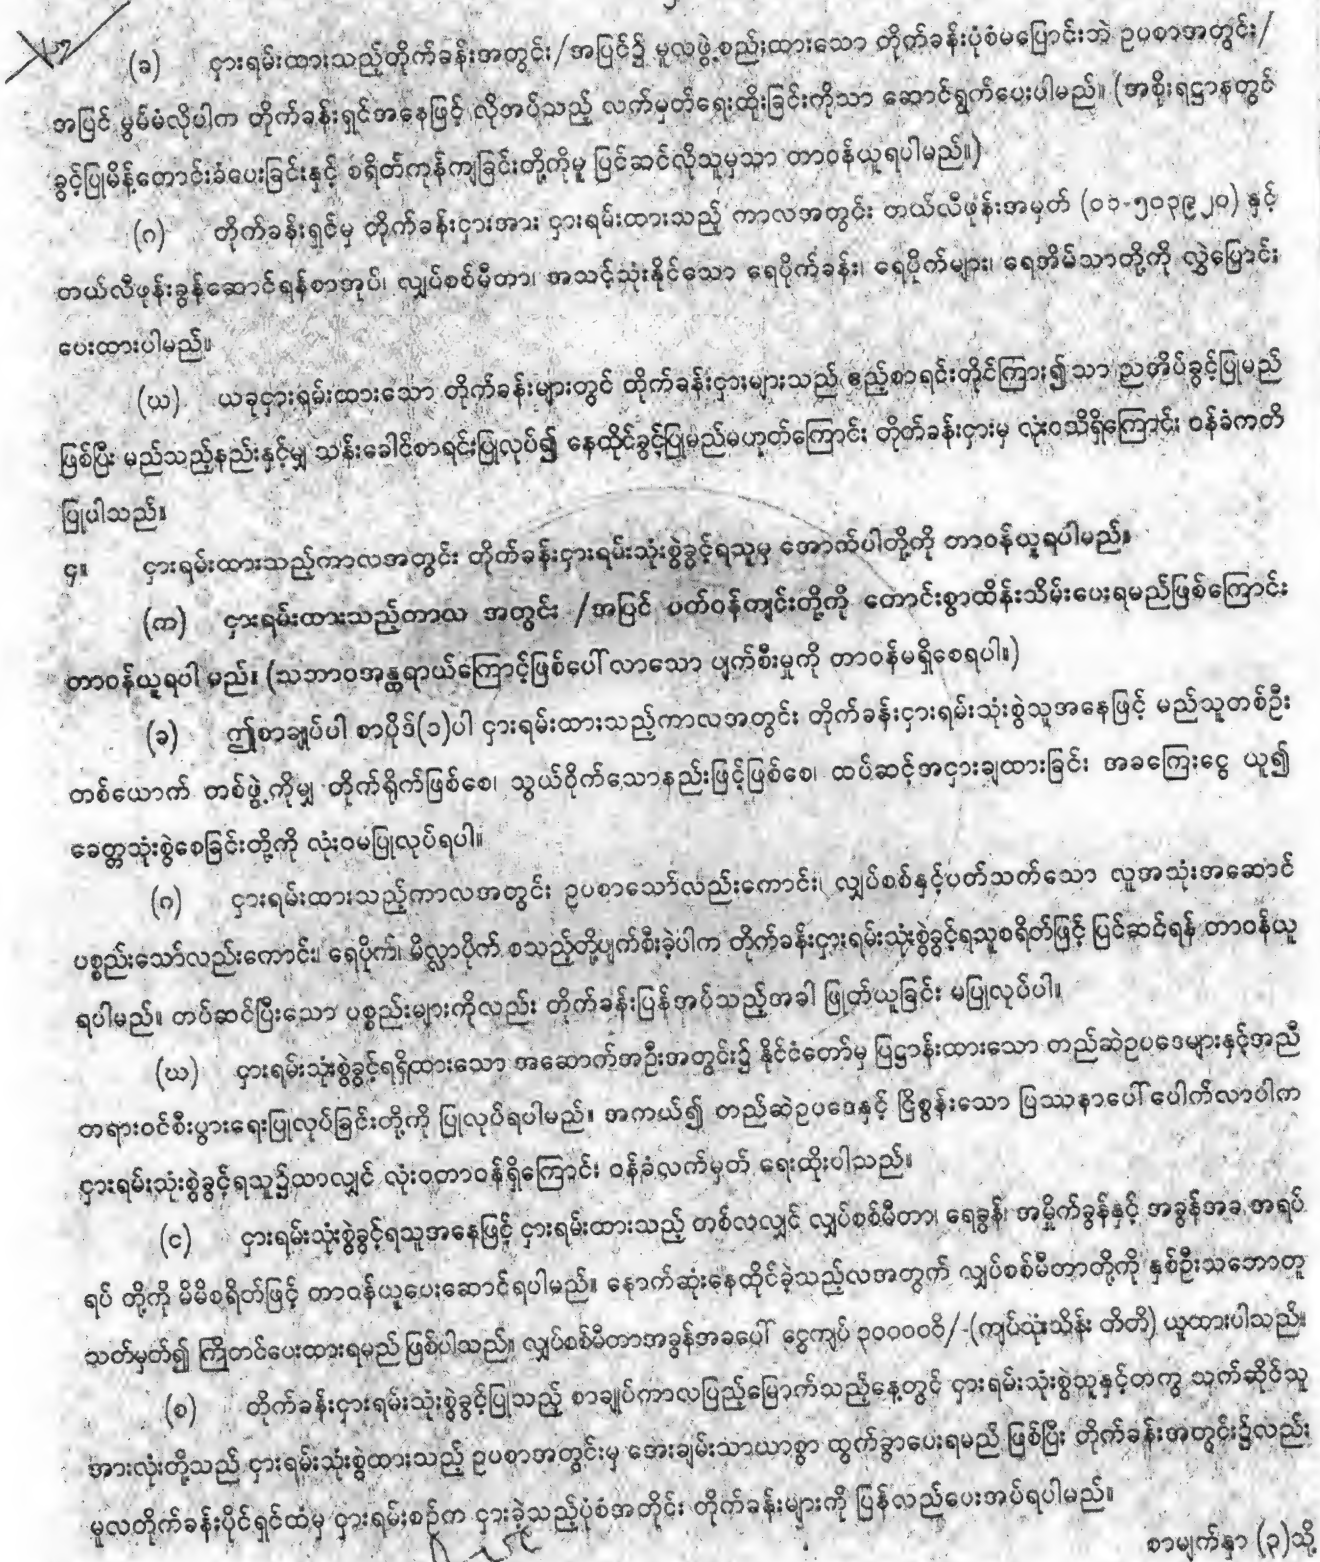 (ခ) ငှားရမ်းထားသည့်တိုက်ခန်းအတွင်း/အပြင်၌ မူလဖွဲ့စည်းထားသော တိုက်ခန်းပုံစံမပြောင်းဘဲ ဥပစာအတွင်း/
အပြင် မွမ်မံလိုပါက တိုက်ခန်းရှင်အနေဖြင့် လိုအပ်သည့် လက်မှတ်ရေးထိုးခြင်းကိုသာ ဆောင်ရွက်ပေးပါမည်။ (အစိုးရဌာနတွင်
ခွင့်ပြုမိန့်တောင်းခံပေးခြင်းနှင့် စရိတ်ကုန်ကျခြင်းတို့ကိုမူ ပြင်ဆင်လိုသူမှသာ တာဝန်ယူရပါမည်။)
(ဂ) တိုက်ခန်းရှင်မှ တိုက်ခန်းငှားအား ငှားရမ်းထားသည့် ကာလအတွင်း တယ်လီဖုန်းအမှတ် (၀၁-၅၀၃၉၂၀) နှင့်
တယ်လီဖုန်းခွန်ဆောင်ရန်စာအုပ်၊ လျှပ်စစ်မီတာ၊ အသင့်သုံးနိုင်သော ရေပိုက်ခန်း၊ ရေပိုက်များ၊ ရေအိမ်သာတို့ကို လွှဲပြောင်း
ပေးထားပါမည်။
(ဃ) ယခုငှားရမ်းထားသော တိုက်ခန်းများတွင် တိုက်ခန်းငှားများသည် ဧည့်စာရင်းတိုင်ကြား၍သာ ညအိပ်ခွင့်ပြုမည်
ဖြစ်ပြီး မည်သည့်နည်းနှင့်မျှ သန်းခေါင်စာရင်းပြုလုပ်၍ နေထိုင်ခွင့်ပြုမည်မဟုတ်ကြောင်း တိုတ်ခန်းငှားမှ လုံးဝသိရှိကြောင်း ဝန်ခံကတိ
ပြုပါသည်။
၄။ ငှားရမ်းထားသည့်ကာလအတွင်း တိုက်ခန်းငှားရမ်းသုံးစွဲခွင့်ရသူမှ အောက်ပါတို့ကို တာဝန်ယူရပါမည်။
(က) ငှားရမ်းထားသည့်ကာလ အတွင်း /အပြင် ပတ်ဝန်ကျင်းတို့ကို ကောင်းစွာထိန်းသိမ်းပေးရမည်ဖြစ်ကြောင်း
တာဝန်ယူရပါ မည်။ (သဘာဝအန္တရာယ်ကြောင့်ဖြစ်ပေါ်လာသော ပျက်စီးမှုကို တာဝန်မရှိစေရပါ။)
(ခ) ဤစာချုပ်ပါ စာပိုဒ်(၁)ပါ ငှားရမ်းထားသည့်ကာလအတွင်း တိုက်ခန်းငှားရမ်းသုံးစွဲသူအနေဖြင့် မည်သူတစ်ဦး
တစ်ယောက် တစ်ဖွဲ့ကိုမျှ တိုက်ရိုက်ဖြစ်စေ၊ သွယ်ဝိုက်သောနည်းဖြင့်ဖြစ်စေ၊ ထပ်ဆင့်အငှားချထားခြင်း အခကြေးငွေ ယူ၍
ခေတ္တသုံးစွဲစေခြင်းတို့ကို လုံးဝမပြုလုပ်ရပါ။
(ဂ) ငှားရမ်းထားသည့်ကာလအတွင်း ဥပစာသော်လည်းကောင်း၊ လျှပ်စစ်နှင့်ပတ်သက်သော လူအသုံးအဆောင်
ပစ္စည်းသော်လည်းကောင်း၊ ရေပိုက်၊ မိလ္လာပိုက် စသည်တို့ပျက်စီးခဲ့ပါက တိုက်ခန်းငှားရမ်းသုံးစွဲခွင့်ရသူစရိတ်ဖြင့် ပြင်ဆင်ရန် တာဝန်ယူ
ရပါမည်။ တပ်ဆင်ပြီးသော ပစ္စည်းများကိုလည်း တိုက်ခန်းပြန်အပ်သည့်အခါ ဖြုတ်ယူခြင်း မပြုလုပ်ပါ။
(ဃ) ငှားရမ်းသုံးစွဲခွင့်ရရှိထားသော အဆောက်အဦးအတွင်း၌ နိုင်ငံတော်မှ ပြဋ္ဌာန်းထားသော တည်ဆဲဥပဒေများနှင့်အညီ
တရားဝင်စီးပွားရေးပြုလုပ်ခြင်းတို့ကို ပြုလုပ်ရပါမည်။ အကယ်၍ တည်ဆဲဥပဒေနှင့် ငြိစွန်းသော ပြဿနာပေါ်ပေါက်လာပါက
ငှားရမ်းသုံးစွဲခွင့်ရသူ၌သာလျှင် လုံးဝတာဝန်ရှိကြောင်း ဝန်ခံလက်မှတ် ရေးထိုးပါသည်။
(င) ငှားရမ်းသုံးစွဲခွင့်ရသူအနေဖြင့် ငှားရမ်းထားသည့် တစ်လလျှင် လျှပ်စစ်မီတာ၊ ရေခွန်၊ အမှိုက်ခွန်နှင့် အခွန်အခ အရပ်
ရပ် တို့ကို မိမိစရိတ်ဖြင့် တာဝန်ယူပေးဆောင်ရပါမည်။ နောက်ဆုံးနေထိုင်ခဲ့သည့်လအတွက် လျှပ်စစ်မီတာတို့ကို နှစ်ဦးသဘောတူ
သတ်မှတ်၍ ကြိုတင်ပေးထားရမည် ဖြစ်ပါသည်။ လျှပ်စစ်မီတာအခွန်အခပေါ် ငွေကျပ် ၃၀၀၀၀၀ိ/-(ကျပ်သုံးသိန်း တိတိ) ယူထားပါသည်။
(စ) တိုက်ခန်းငှားရမ်းသုံးစွဲခွင့်ပြုသည့် စာချုပ်ကာလပြည့်မြောက်သည့်နေ့တွင် ငှားရမ်းသုံးစွဲသူနှင့်တကွ သက်ဆိုင်သူ
အားလုံးတို့သည် ငှားရမ်းသုံးစွဲထားသည့် ဥပစာအတွင်းမှ အေးချမ်းသာယာစွာ ထွက်ခွာပေးရမည် ဖြစ်ပြီး တိုက်ခန်းအတွင်း၌လည်း
မူလတိုက်ခန်းပိုင်ရှင်ထံမှ ငှားရမ်းစဉ်က ငှားခဲ့သည့်ပုံစံအတိုင်း တိုက်ခန်းများကို ပြန်လည်ပေးအပ်ရပါမည်။
စာမျက်နှာ (၃)သို့